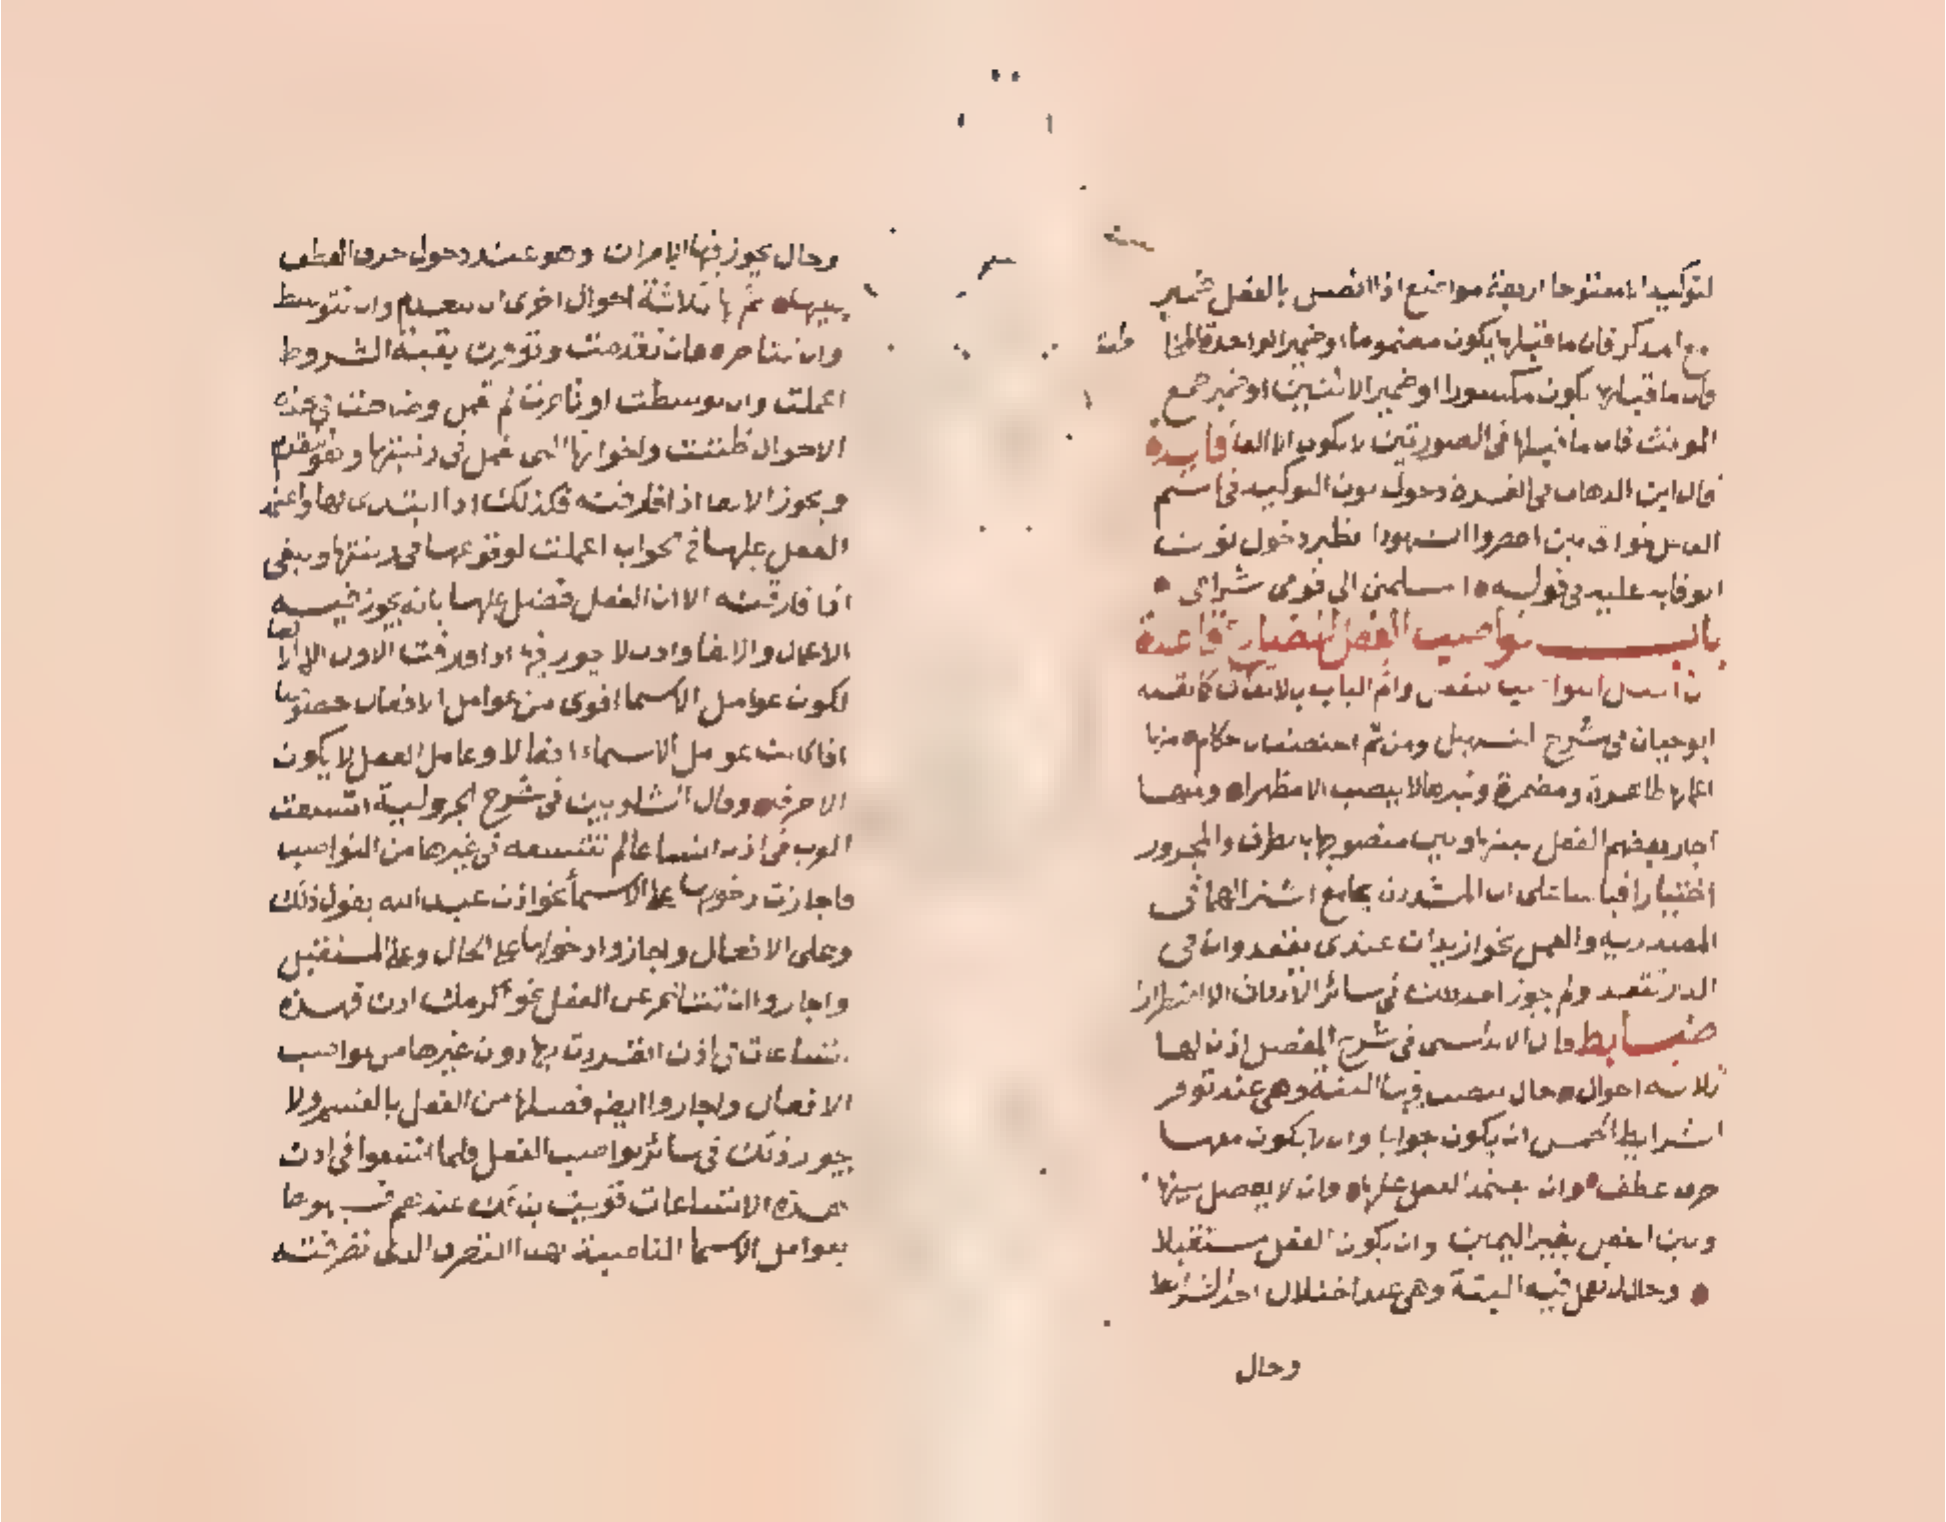 التوكيد الا مفتوحا اربعة مواضع اذا اتصل بالفعل ضمير
جمع مذكر فان ما قبلها يكون مضموما او ضمير الواحدة المخاطبة
فان ما قبلها يكون مكسورا او ضمير الاثنين او ضمير جمع
المونث فان ما قبلها في الصورتين لا يكون الا الفا فايدة
قال ابن الدهان في الغرة دخول نون التوكيد في اسم
الفاعل نحو اقايلن احضروا الشهودا نظير دخول نون
الوقاية عليه في قوله امسلمني الى قومي شراحي
باب نواصب الفعل المضارع قاعدة
ان اصل النواصب للفعل وام الباب بالاتفاق كما نقله
ابو حيان في شرح التسهيل ومن ثم اختصت باحكام منها
اعمالها ظاهرة ومضمرة وغيرها لا ينصب الا مظهرا ومنها
اجاز بعضهم الفصل بينها وبين منصوبها بالظرف والمجرور
اختيارا قياسا على ان المشددة بجامع اشتراكهما في
المصدرية والعمل نحو اريد ان عندي تقعد وان في
الدار تقعد ولم يجوز احد ذلك في سائر الادوات الا اضطرارا
ضابط قال الاندلسي في شرح المفصل اذن لها
ثلاثة احوال حال تنصب فيها البتة وهي عند توفر
الشرايط الخمس ان يكون جوابا وان لا يكون معها
حرف عطف وان يعتمد الفعل عليها وان لا يفصل بينها
وبين الفعل بغير اليمين وان يكون الفعل مستقبلا
وحال لا تعمل فيه البتة وهي عند اختلال احد الشرايط
وحال
وحال يجوز فيها الامران وهو عند دخول حرف العطف
عليها ثم لها ثلاثة احوال اخرى ان تتقدم وان تتوسط
وان تتاخر فان تقدمت وتوفرت بقية الشروط
اعملت وان توسطت او تاخرت لم تعمل وضاهت في هذه
الاحوال ظننت واخواتها التي تعمل في رتبتها وهو تقدم
ويجوز الالغا اذا فارقته فكذلك اذا ابتدي بها واعتمد
الفعل عليها في الجواب اعملت لوقوعها في رتبتها وتلغى
اذا فارقته الا ان الفعل فضل عليها بانه يجوز فيه
الاعمال والالغا واذن لا يجوز فيها اذا فارقت الاول الا الالغا
لكون عوامل الاسما اقوى من عوامل الافعال خصوصا
اذا كانت عوامل الاسماء افعالا وعامل الفعل لا يكون
الا حرفا وقال الشلوبين في شرح الجزولية اتسعت
العرب في اذن اتساعا لم تتسعه في غيرها من النواصب
فاجازت دخولها على الاسما نحو اذن عبد الله يقول ذلك
وعلى الافعال واجازوا دخولها على الحال وعلى المستقبل
واجازوا ان تتاخر عن الفعل نحو اكرمك اذن فهذه
اتساعات في اذن انفردت بها دون غيرها من نواصب
الافعال واجازوا ايضا فصلها من الفعل بالقسم ولا
يجوز ذلك في سائر نواصب الفعل فلما اتسعوا في اذن
هذه الاتساعات قويت بذلك عندهم فشبهوها
بعوامل الاسما الناصبة لهذا التصرف الذي تصرفته